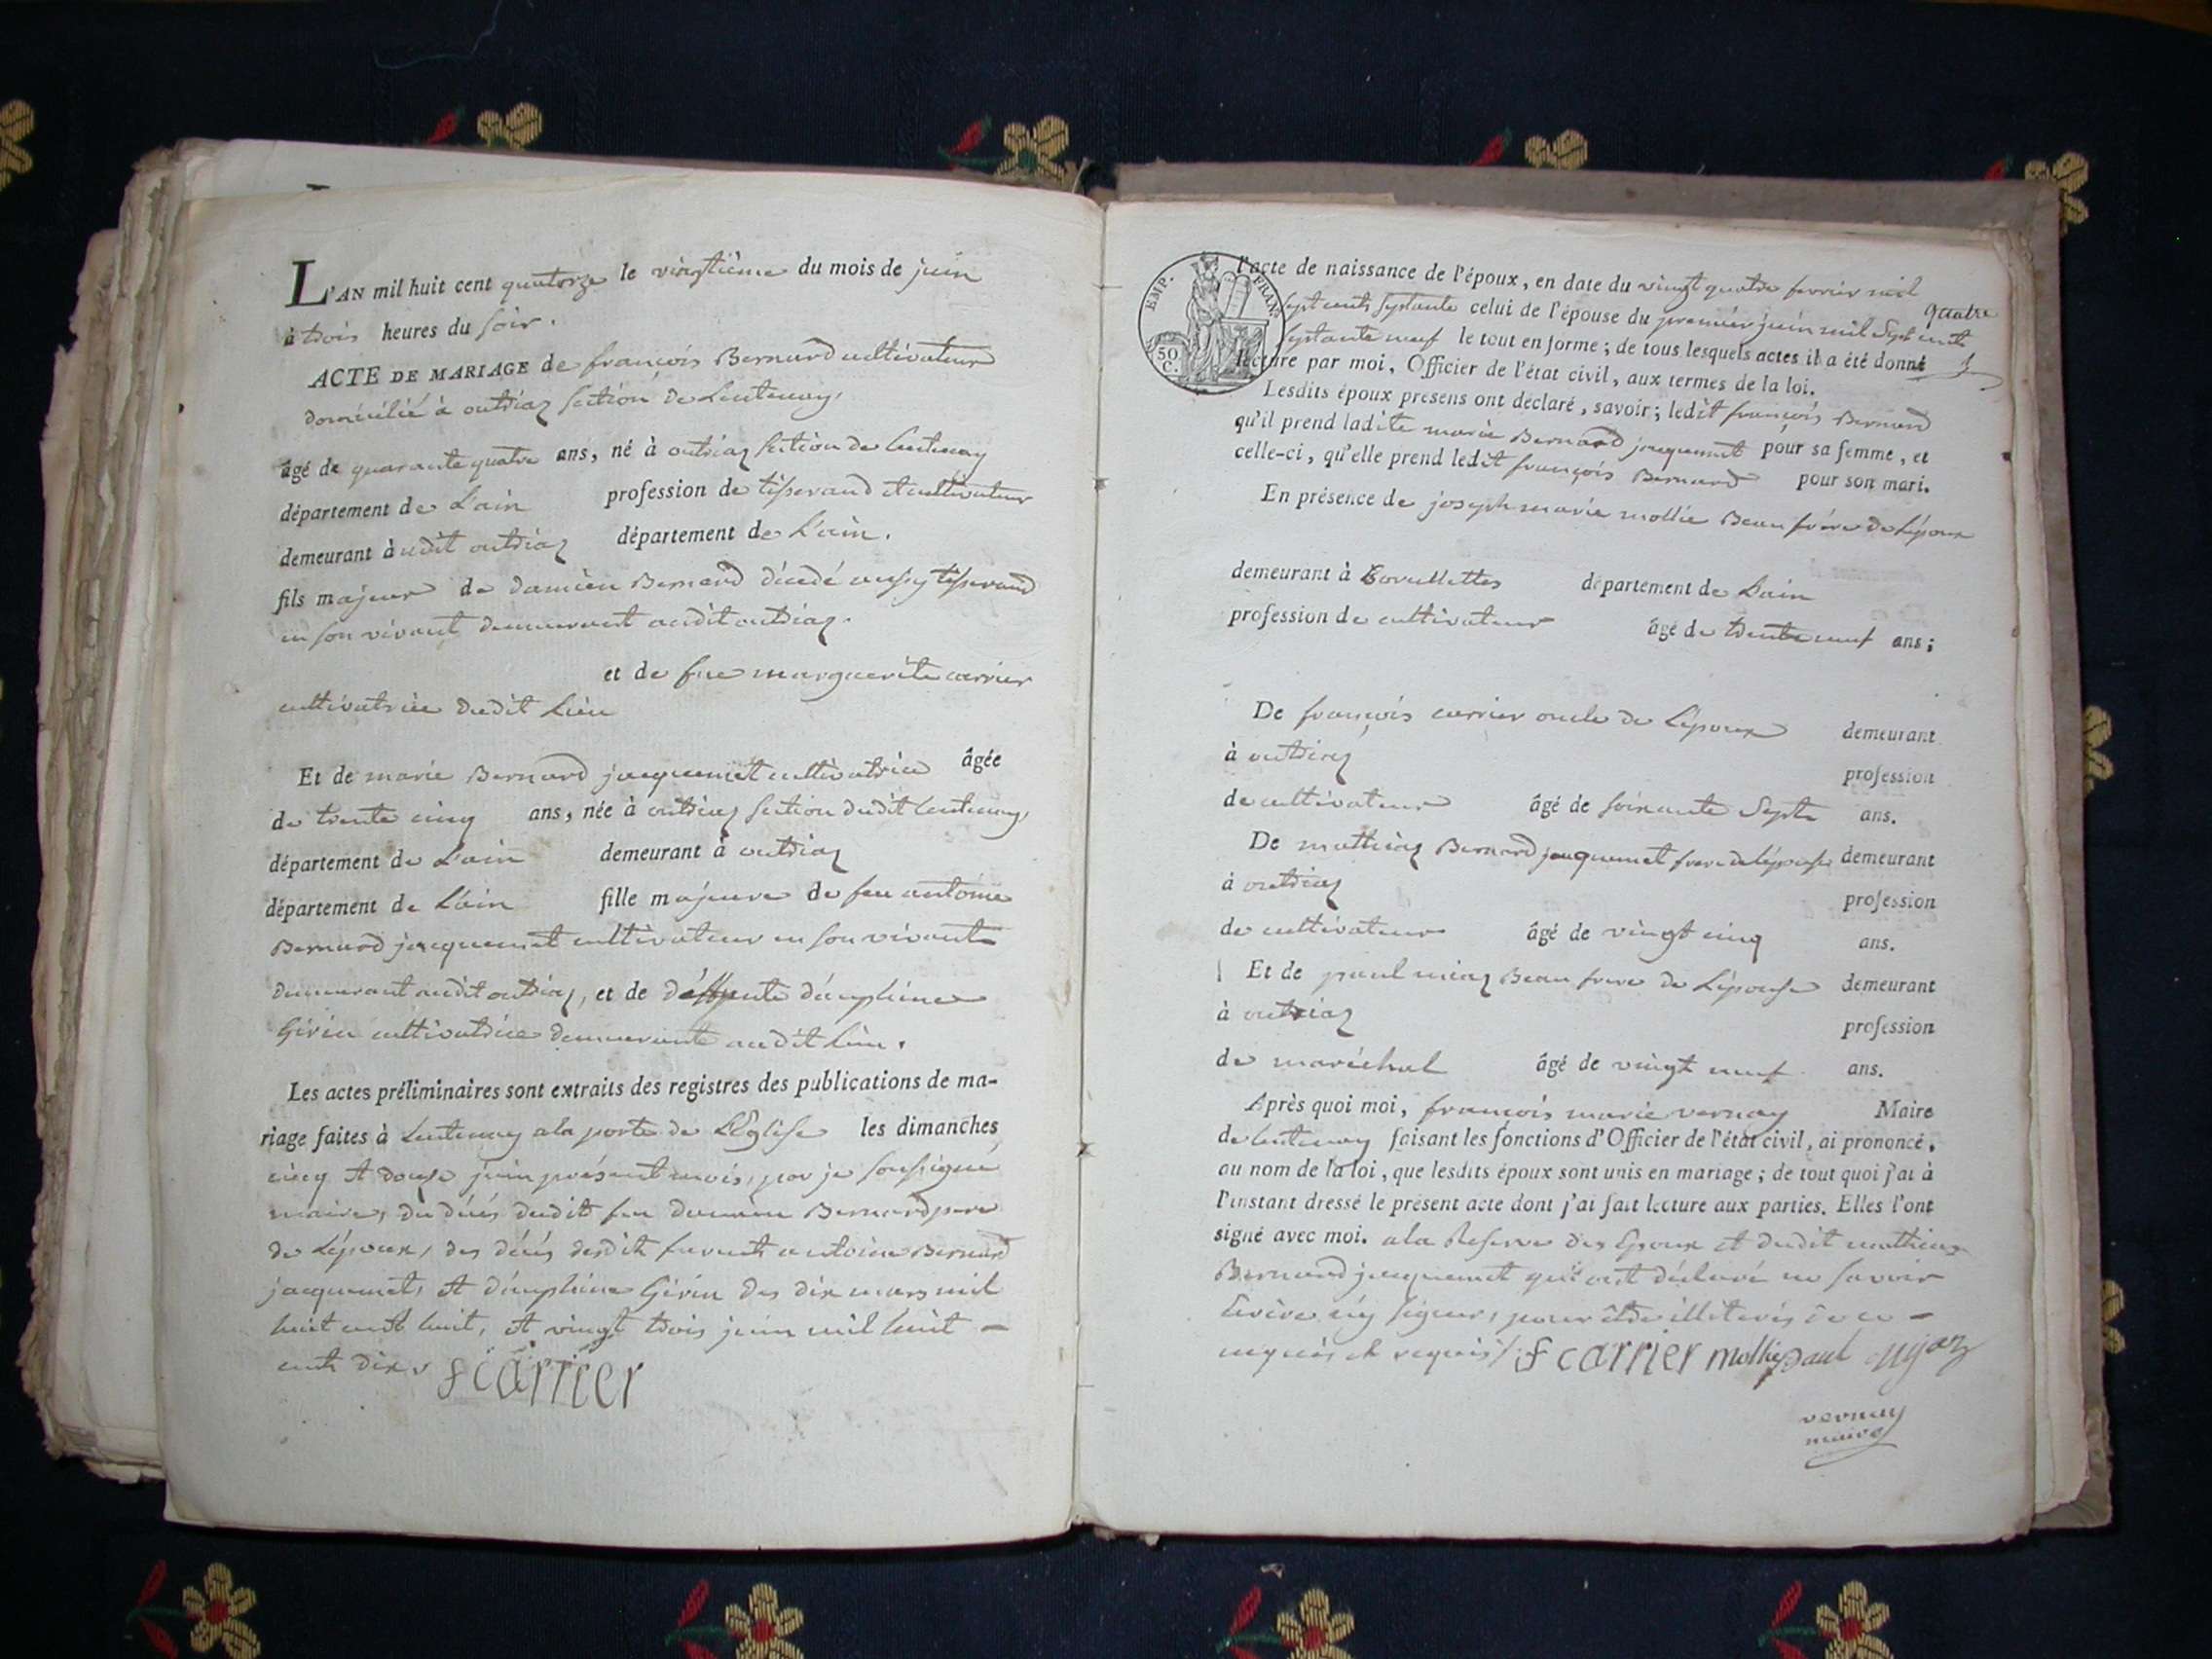 L'AN mil huit cent quatorze le vingtième du mois de juin
à trois heures du soir.
ACTE DE MARIAGE de françois Bernard cultivateur
domicilié à outriaz section de Lentenay,
âgé de quarante quatre ans, né à outriaz section de lentenay
département de L'ain profession de tisserand et cultivateur
demeurant àudit outriaz département de L'ain.
fils majeur de damien Bernard décedé aussy tisserand
en son vivant demeurant audit outriaz.
et de feue marguerite carrier
cultivatrice dudit Lieu
Et de marie Bernard jacquemet cultivatrice âgée
de trente cinq ans, née à outriaz section dudit lentenay,
département de L'ain demeurant à outriaz
département de L'ain fille majeure de feu antoine
Bernard jacquemet cultivateur en son vivant
demeurant audit outriaz, et de déffunte dauphine
Girin cultivatrice demeurante audit Lieu.
Les actes préliminaires sont extraits des registres des publications de ma-
riage faites à Lentenay a la porte de L'Eglise les dimanches
cinq et douze juin présent mois, par je soussigné
maire, du décés dudit feu damien Bernard pere
de L'époux, des décés desdits antoine Bernard
jacquemet, et dauphine Girin des dix mars mil
huit cent huit, et vingt trois juin mil huit
cents dix. f carrier
EMP. FRAN.
50 C.
l'acte de naissance de l'époux, en date du vingt quatre fevrier mil
sept cents septante celui de l'épouse du premier juin mil sept cents quatre
septante neuf le tout en forme; de tous lesquels actes il a été donné
lecture par moi, Officier de l'état civil, aux termes de la loi.
Lesdits époux présens ont déclaré, savoir; ledit françois Bernard
qu'il prend ladite marie Bernard jacquemet pour sa femme, et
celle-ci, qu'elle prend ledit françois Bernard pour son mari.
En présence de joseph marie mollie Beau frére de L'époux
demeurant à département de L'ain
profession de cultivateur âgé de trente neuf ans;
De françois carrier oncle de L'époux demeurant
à outriaz profession
de cultivateur âgé de soixante Sept ans.
De mathieu Bernard jacquemet frere de l'épouse demeurant
à outriaz profession
de cultivateur âgé de vingt cinq ans.
Et de paul Beau frere de L'épouse demeurant
à outriaz profession
de maréchal âgé de vingt neuf ans.
Après quoi moi, françois marie vernay Maire
de lentenay faisant les fonctions d'Officier de l'état civil, ai prononcé,
au nom de la loi, que lesdits époux sont unis en mariage; de tout quoi j'ai à
l'instant dressé le présent acte dont j'ai fait lecture aux parties. Elles l'ont
signé avec moi. a la Reserve des Epoux et dudit mathieu
Bernard jacquemet qui ont déclaré ne savoir
Ecrire ny signer, pour être illiterés de ce
enquis et requis /. f carrier mollie paul
vernay
maire